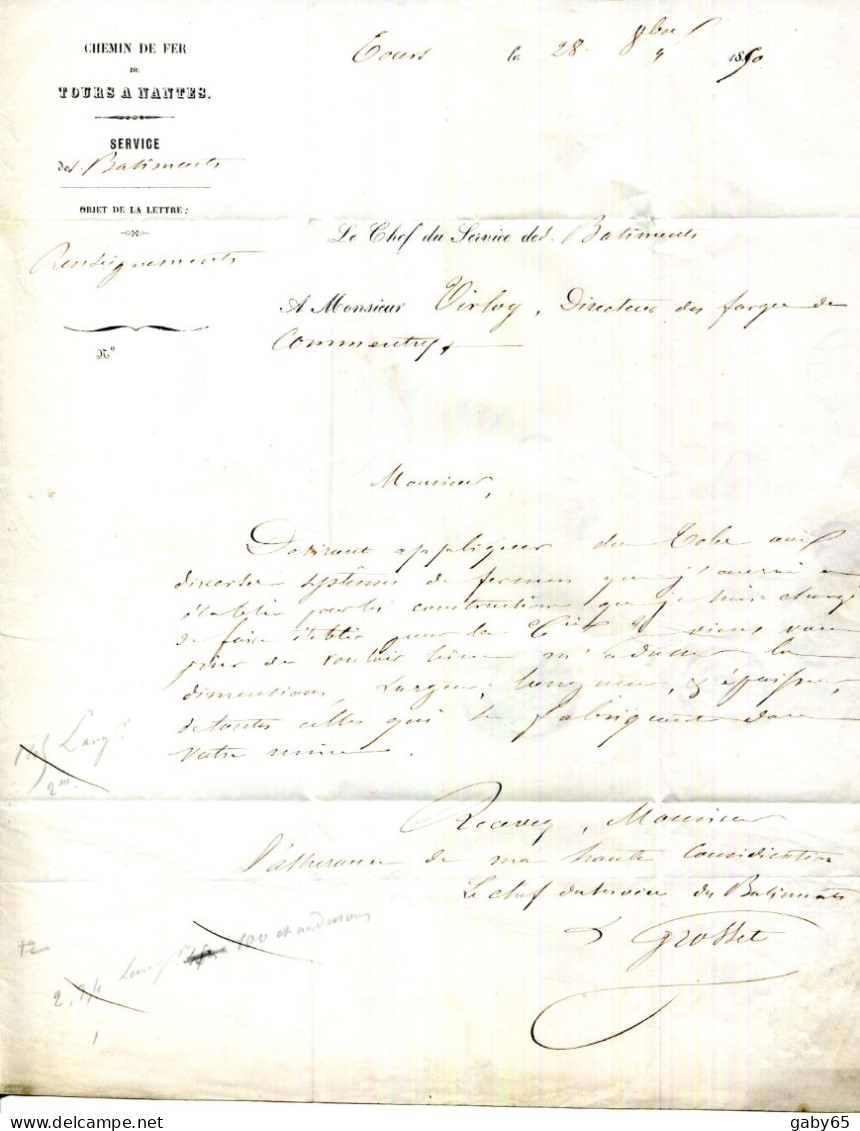 CHEMIN DE FER
DE
TOURS A NANTES.
SERVICE
des Batiments
OBJET DE LA LETTRE :
Renseignements
N°
Tours le 28 8bre 1850
Le Chef du Service des Batiments
A Monsieur Virloy, Directeur des forges de
Commentry,
Monsieur,
Desirant appliquer du Tole aux
diverses systêmes de fermes que j'aurai a
établir pour les constructions que je suis chargé
de faire établir pour la Cie je viens vous
prier de vouloir bien m'adresser les
dimentions, Largeur, longueur, & épaisseur,
de toutes celles qui se fabriquent dans
votre usine.
Recevez, Monsieur
l'assurance de ma haute Considération
Le chef du service des Batiments
Grosset
Largr
2m
100 et au dessous
2, 3/4
1
gaby65